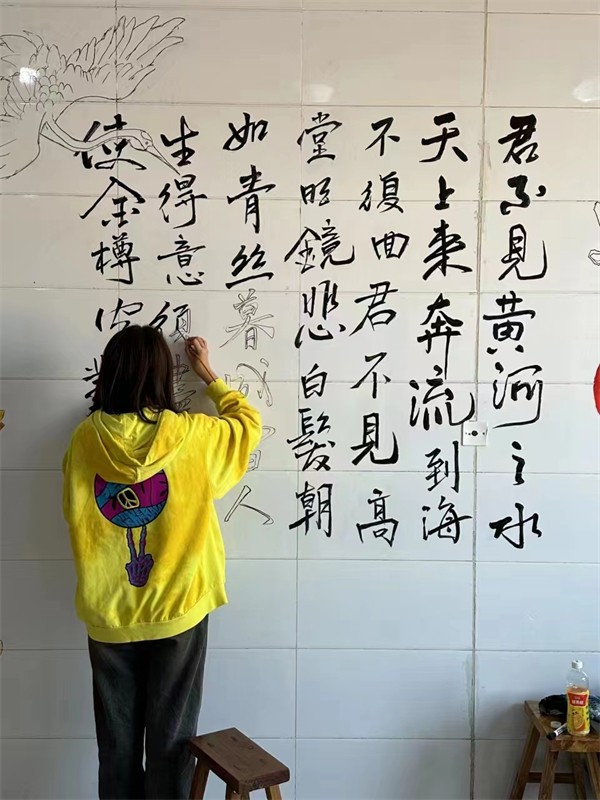 君不見黄河之水
天上來奔流到海
不復回君不見高
堂明鏡悲白髮朝
如青絲暮成雪人
生得意須盡
使金樽空對